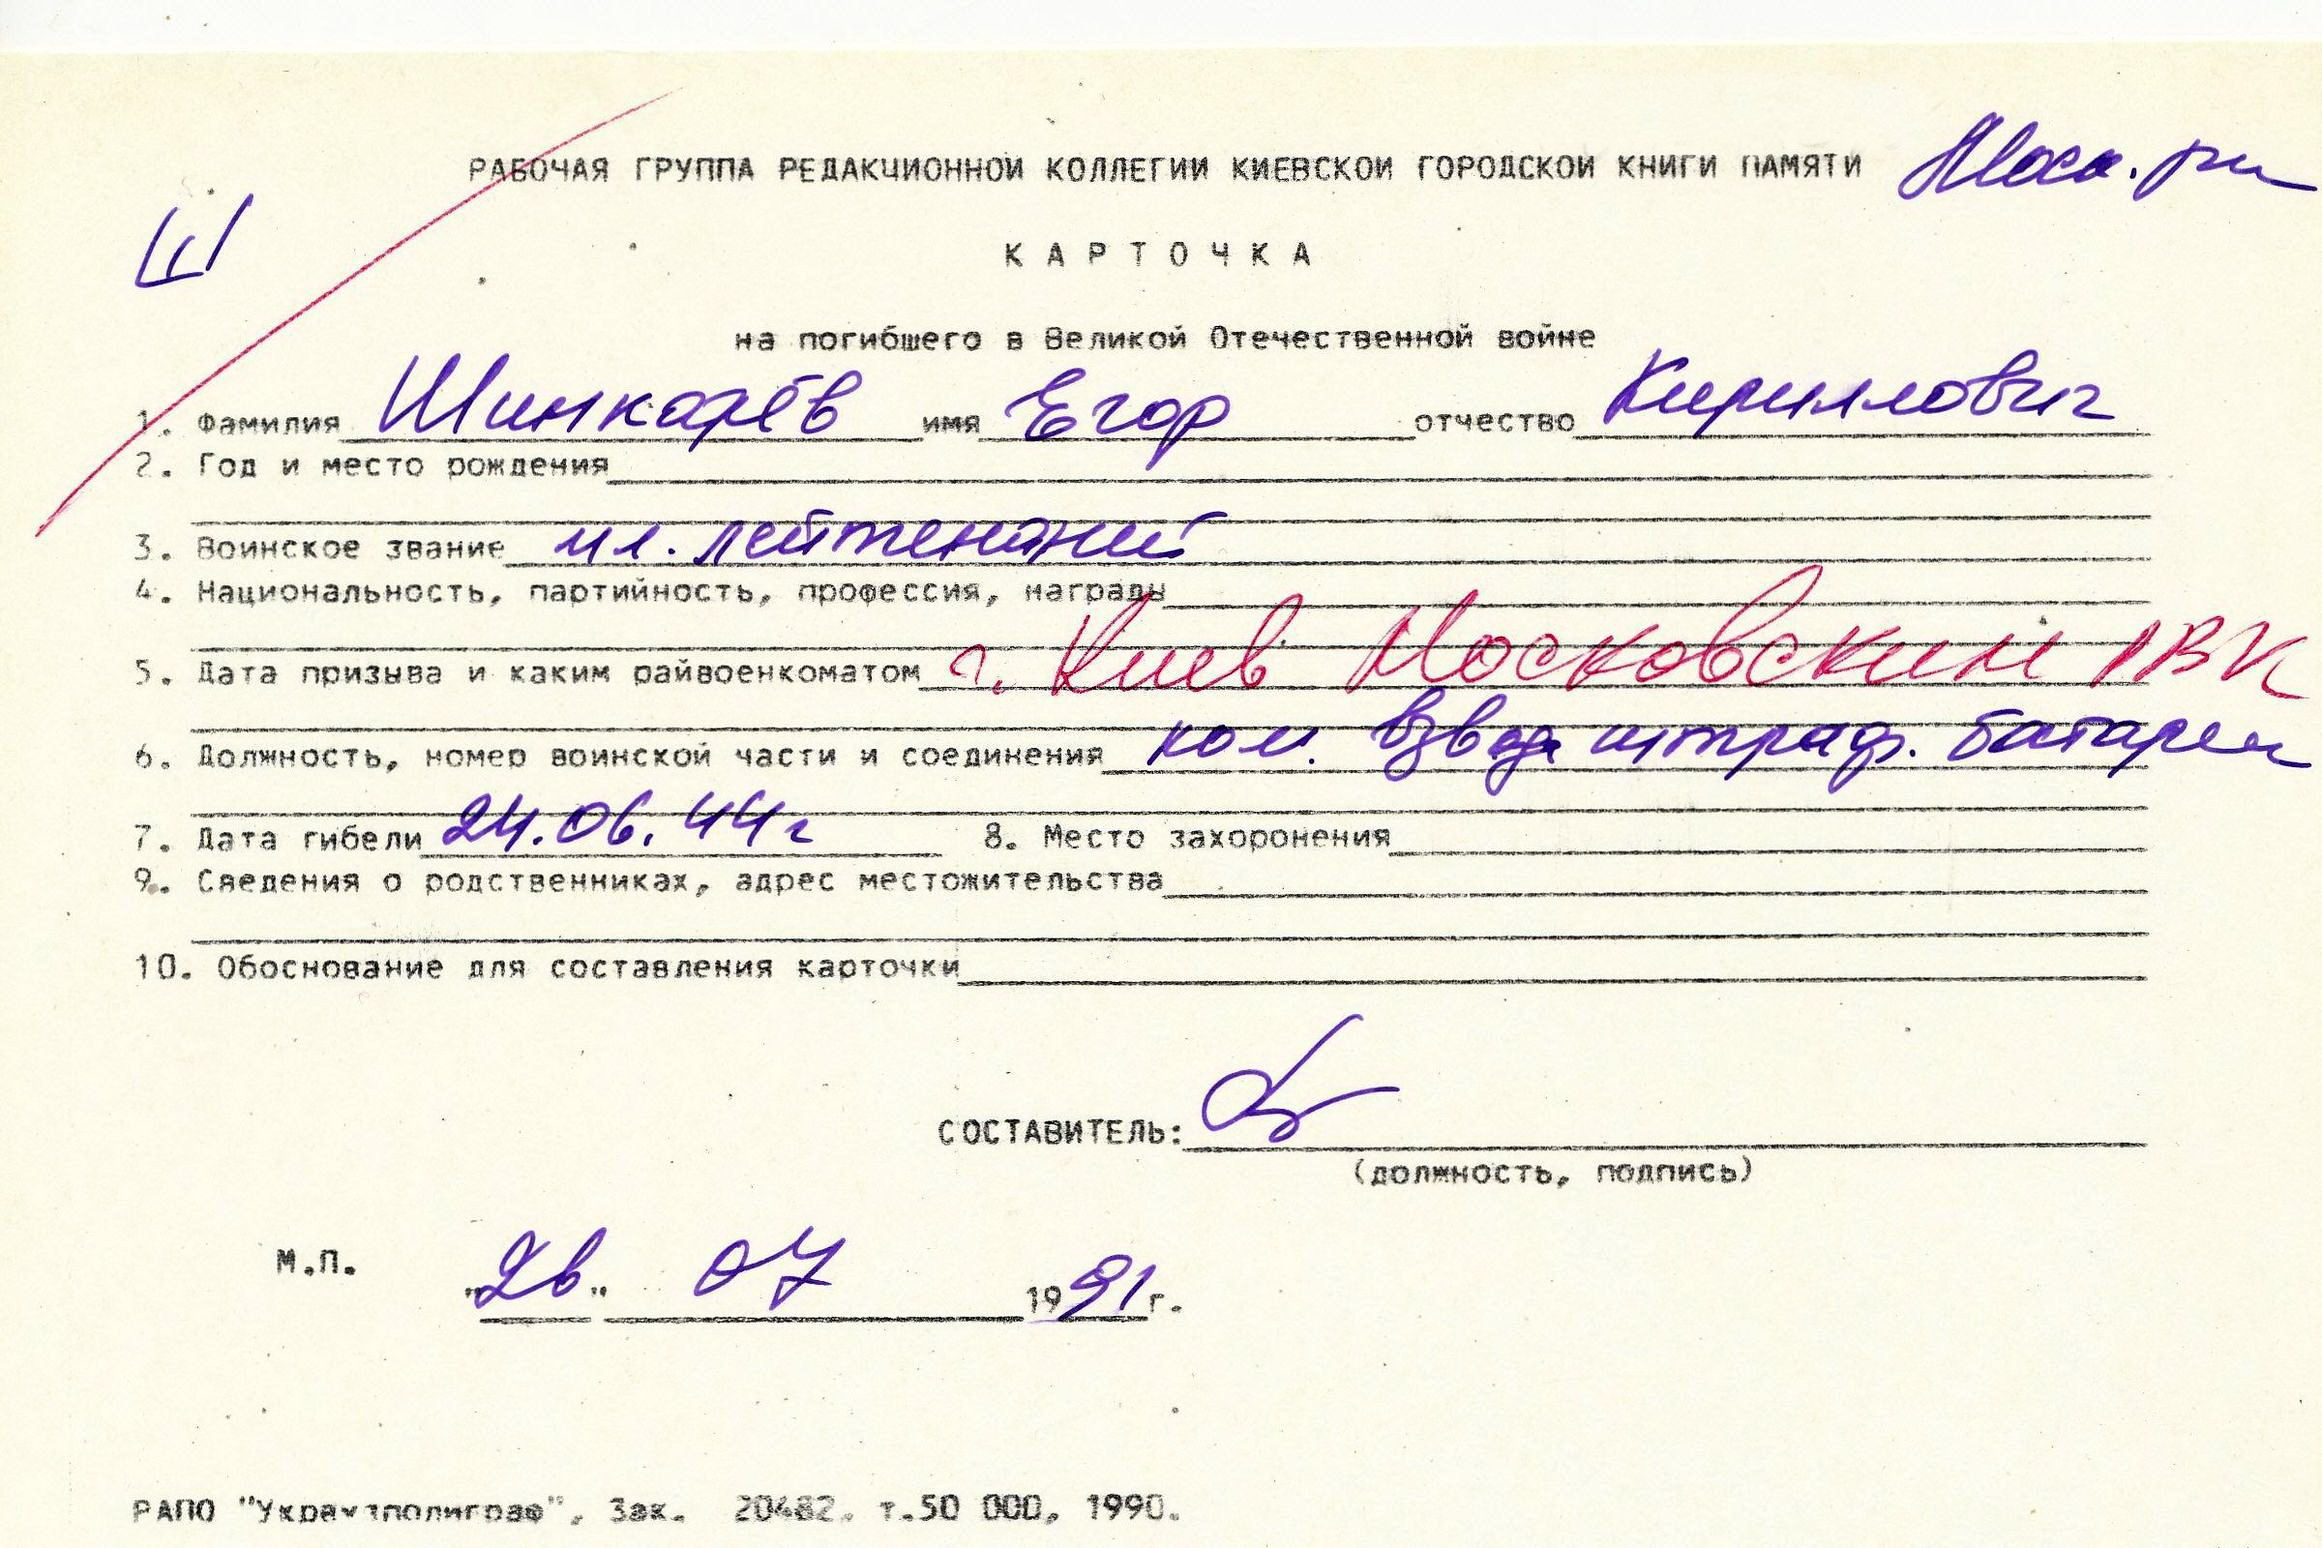 РАБОЧАЯ ГРУППА РЕДАКЦИОННОЙ КОЛЛЕГИИ КИЕВСКОЙ ГОРОДСКОЙ КНИГИ ПАМЯТИ Моск. рн
Ш
КАРТОЧКА
на погибшего в Великой Отечественной войне
1. Фамилия Шинкарёв имя Егор отчество Кириллович
2. Год и место рождения
3. Воинское звание мл. лейтенант
4. Национальность, партийность, профессия, награды
5. Дата призыва и каким райвоенкоматом г. Киев Московский РВК
6. Должность, номер воинской части и соединения ком. взвода штраф. батареи
7. Дата гибели 24.06.44г 8. Место захоронения
9. Сведения о родственниках, адрес местожительства
10. Обоснование для составления карточки
СОСТАВИТЕЛЬ:
(должность, подпись)
М.П.
"26" 07 1991г.
РАПО "Укрвузполиграф", Зак. 20482. т.50 000, 1990.